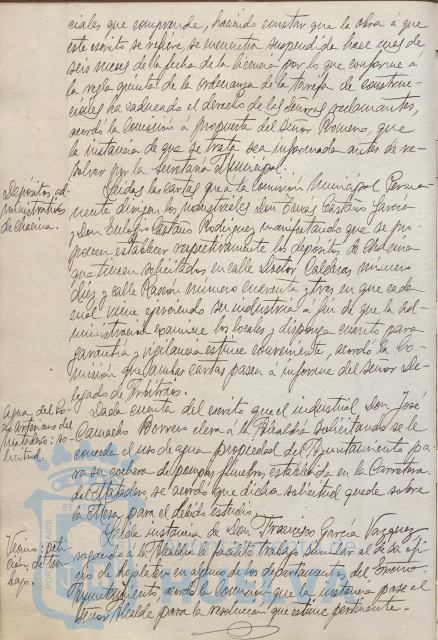 ciales que comprende, haciendo constar que la obra á que
este escrito se refiere, se encuentra suspendida hace mas de
seis meses de la fecha de la licencia por lo que conforme á
la regla quinta de la ordenanza de la tarifa de construc-
ciones ha caducado el derecho de los señores reclamantes,
acordó la Comisión á propuesta del Señor Romero, que
la instancia de que se trata sea informada antes de re-
solver por la Secretaría Municipal.
Depósitos ad-
ministrativos
de chacina.
Leidas las cartas que á la Comisión Municipal Perma-
nente dirigen los industriales Don Castaño García
y Don Eulogio Castaño Rodríguez manifestando que se pro-
ponen establecer respectivamente los depósitos de chacina
que tienen solicitados en calle Doctor Calderas número
diez y calle Rascón número cuarenta y tres en que cada
cual viene ejerciendo su industria á fin de que la ad-
ministración examine los locales y disponga cuanto para
garantía y vigilancia estime conveniente, acordó la Co-
misión que ambas cartas pasen á informe del Señor De-
legado de Arbitrios.
Agua del Po-
zo artesiano del
Matadero: so-
licitud.
Dada cuenta del escrito que el industrial Don José
Camacho Borrero eleva á la Alcaldía solicitando se le
conceda el uso de agua propiedad del Ayuntamiento pa-
ra su cochera de pompas fúnebres, establecida en la Carretera
del Matadero, se acordó que dicha solicitud quede sobre
la Mesa para el debido estudio.
Vecino: peti-
ción de tra-
bajo.
Leida instancia de Don Francisco García Vazquez
rogando á la Alcaldía le facilite trabajo similar al de su ofi-
cio de hojalatero en alguno de los departamentos del Excmo.
Ayuntamiento, acordó la Comisión que la instancia pase al
Señor Alcalde para la resolución que estime pertinente.